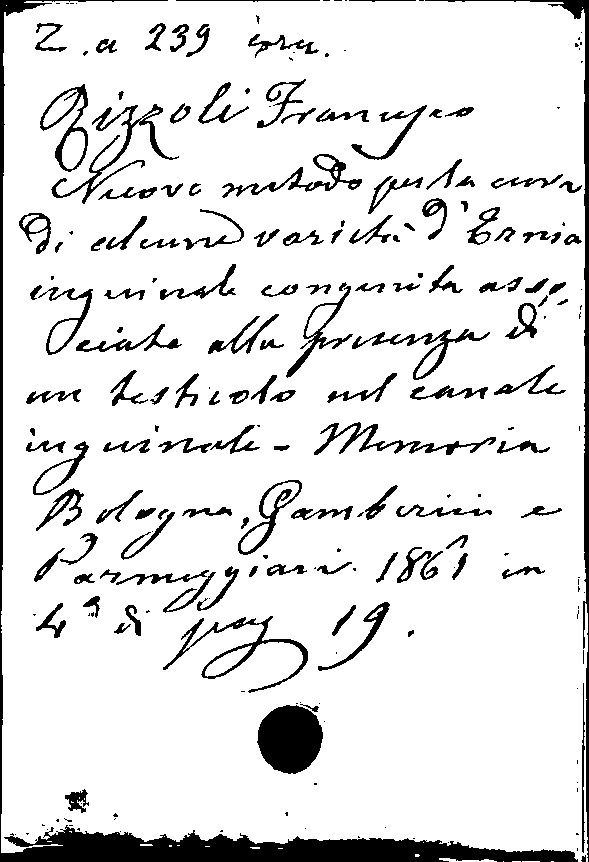 Z. a 239
Rizzoli Francesco
Nuovo metodo per la cura
di alcune varietà d'Ernia
inguinale congenita asso
ciata alla presenza di
un testicolo nel canale
inguinale - Memoria
Bologna, Gamberini e
Parmeggiani. 1861 in
4° di pag 19.